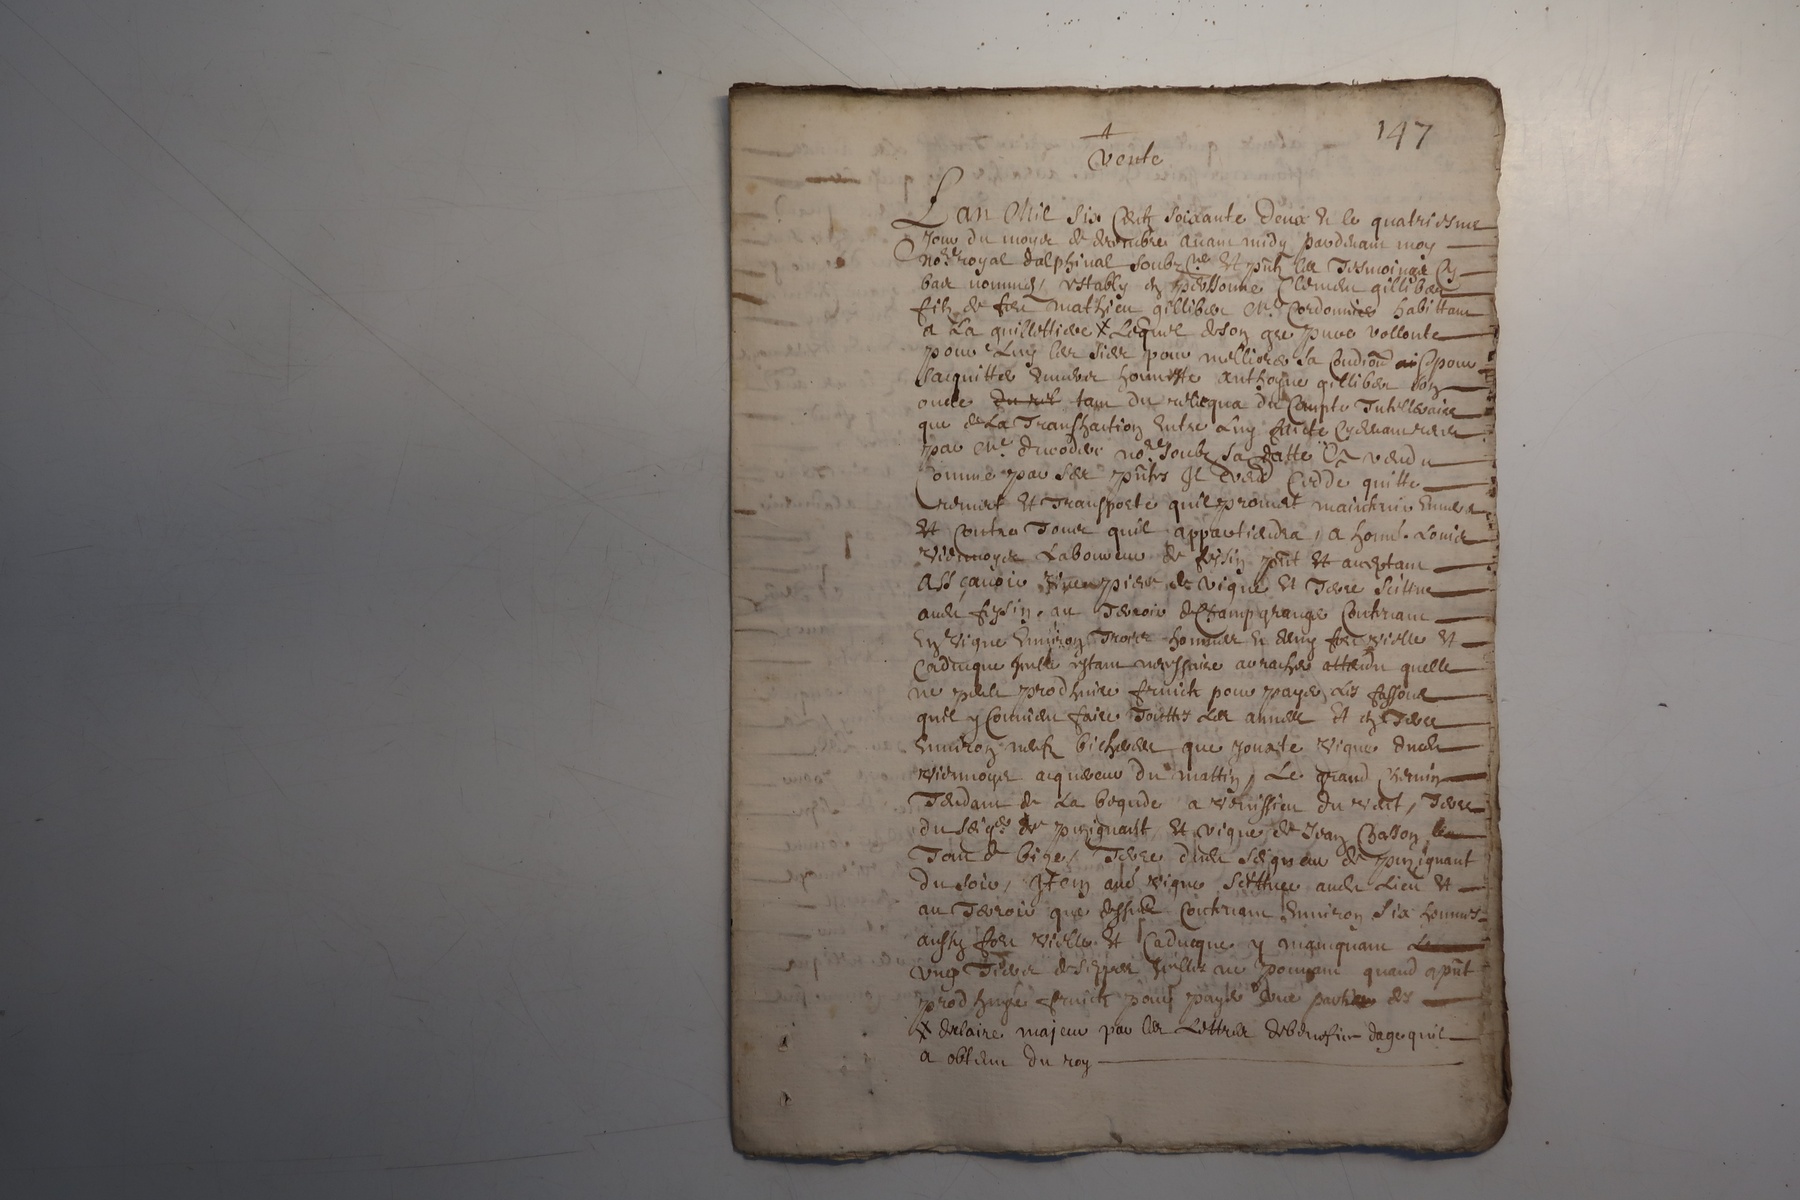 147
Vente
Lan Mil Six Centz Soixante deux & le quatriesme
Jour du moys de decembre avant midy pardevant moy
no.re royal dalphinal soubz.né et pñtz les Tesmoings Cy
bas nommes, estably en personne Clement gilliber
filz de feu mathieu gilliber M.e Cordonnier habittant
a La guillottiere X Lequel deson gre pure vollonte
pour Luy les siens pour melliorer sa Condiõn Cy pour
sacquitter envers honneste anthoyne gilliber son
oncle tant du relicqua du Compte Tutellaire
que de La Transhaction Entre Luy faicte Cydevant receu
par M.e no.re Soubz Sa datte a vendu
Comme par ses pñtes Il vend Cedde quitte
remect Et Transporte quil promet maintenir Envers
Et Contre Tous quil appartiendra, a honn. Louis
Viennoys Laboureur de feysin pñt et acceptant
Assçavoir piece de vigne Et Terre Scittue
audit feysin, au Terroir de Champgrange Contenant
En Vigne Environ Trois hommes & demy fort vielle Et
Caducque estant necessaire arracher attendu quelle
ne peult prodhuire fruict pour payer Les fassons
quil y Convient faire Touttes Les annees Et en Terre
Environ neuf bicherees que Jouxte vigne dudit
Viennoys acquereur du mattin, Le grand Chemin
Tendant de La begude a Venissieu du vent, Terre
du seig.r de puzignant, Et vigne de Jean Chasson
de bize, Terre dudit Seigneur de puzignant
du soir, Item une vigne Scittuee audit Lieu Et
au Terroir que dessus Contenant Environ Six hommes
aussy fort vielle Et Caducque y manquant
ung Tiers de seppes ne pouvant quand a pñt
prodhuire fruict pour payer une partie des
X declaire majeur par les Lettres de benefice dage quil
a obtenu du roy